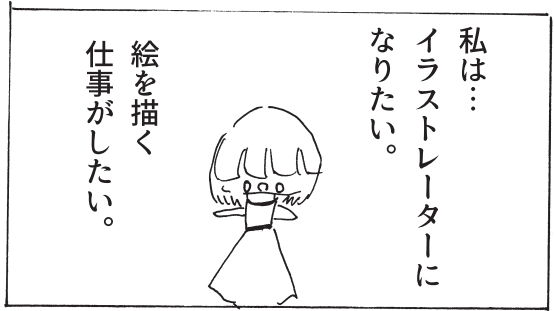 私は…
イラストレーターに
なりたい。
絵を描く
仕事がしたい。